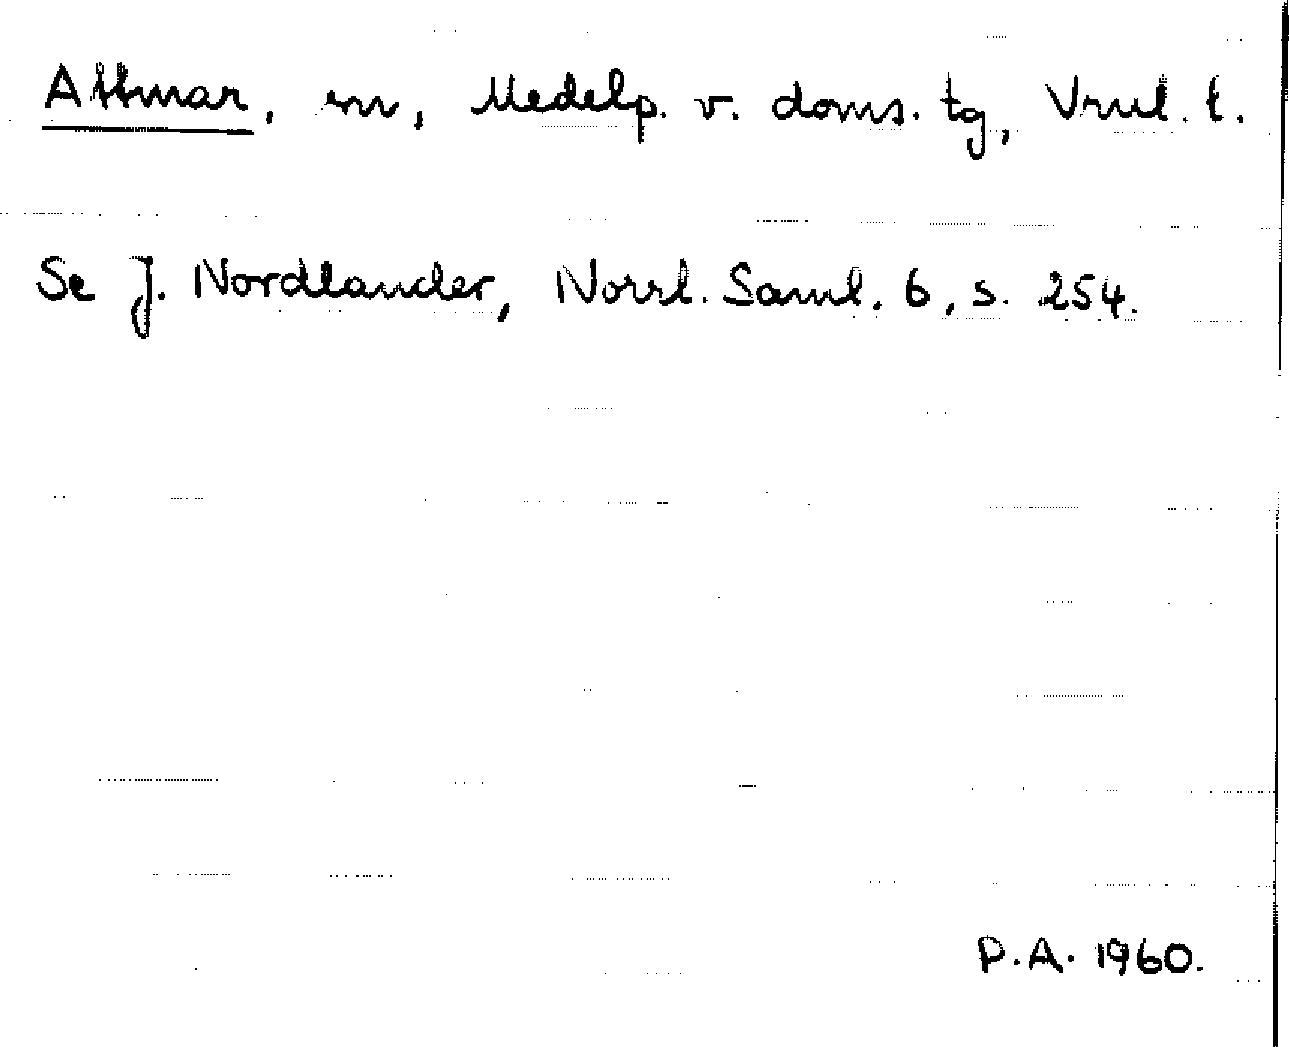 Attmar, sn, Medelp. v. doms. tg, Vnl. l.
Se J. Nordlander, Norrl. Saml. 6, s. 254.
P.A. 1960.